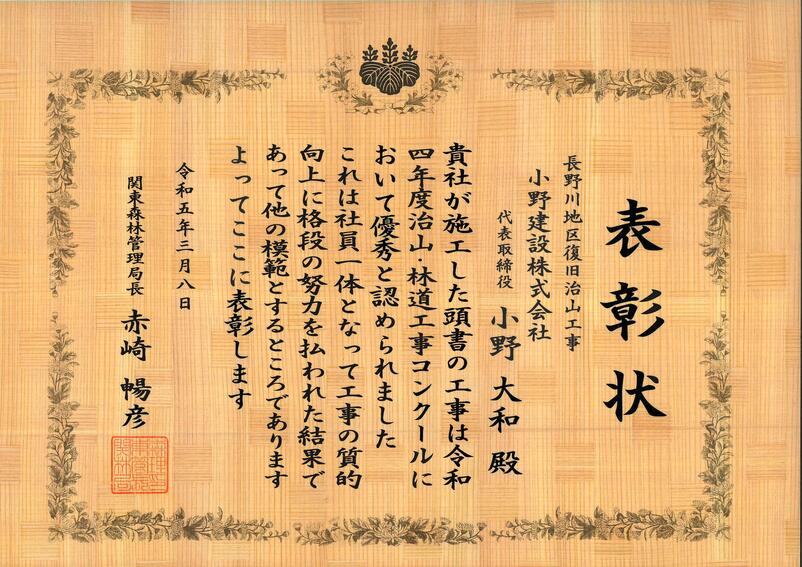 表彰状
長野川地区復旧治山工事
小野建設株式会社
代表取締役 小野大和殿
貴社が施工した頭書の工事は令和
四年度治山・林道工事コンクールに
おいて優秀と認められました
これは社員一体となって工事の質的
向上に格段の努力を払われた結果で
あって他の模範とするところであります
よってここに表彰します
令和五年三月八日
関東森林管理局長 赤崎暢彦